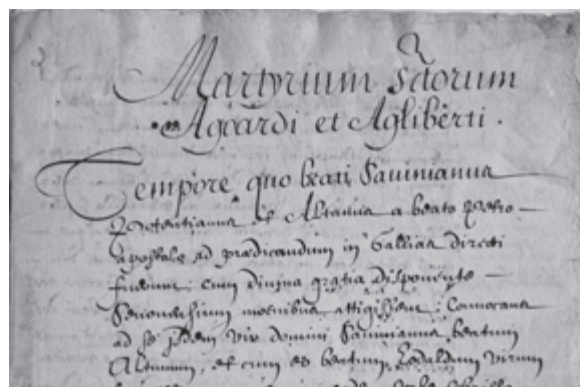 Martyrium Sctorum
Agoardi et Agliberti.
Tempore quo beati Savinianus
Potentianus et Altinus a beato Petro
apostolo ad prædicandum in Gallias directi
fuerunt cum divina gratia disponente
Senonensium mœnibus attigissent: Convocans
ad se idem vir domini Savinianus beatum
Altinum, et cum eo beatum Eodaldum virum